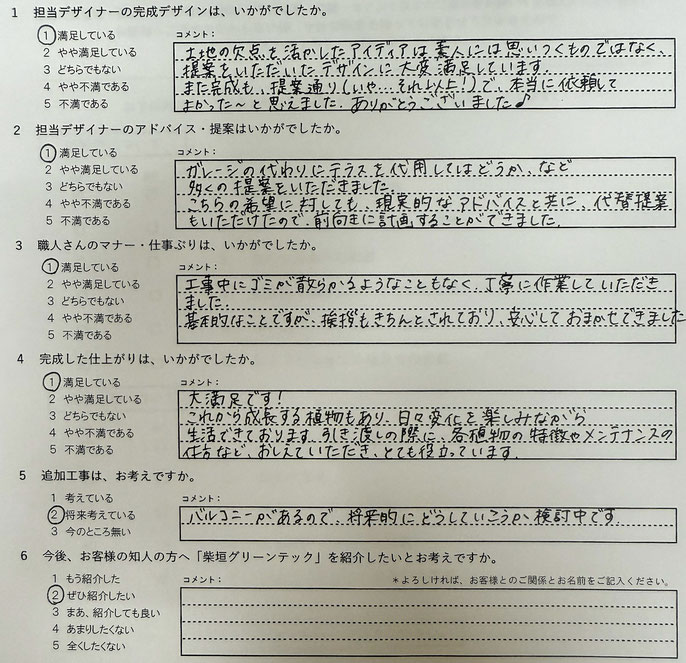 1 担当デザイナーの完成デザインは、いかがでしたか。
1 満足している
2 やや満足している
3 どちらでもない
4 やや不満である
5 不満である
コメント：
土地の欠点を活かしたアイディアは素人には思いつくものではなく、
提案をいただいたデザインに大変満足しています。
また完成も、提案通り(いや…それ以上!)で、本当に依頼して
よかった〜と思えました。ありがとうございました♪
2 担当デザイナーのアドバイス・提案はいかがでしたか。
1 満足している
2 やや満足している
3 どちらでもない
4 やや不満である
5 不満である
コメント：
ガレージの代わりにテラスを代用してはどうか、など
多くの提案をいただきました。
こちらの希望に対しても、現実的なアドバイスと共に、代替提案
もいただけたので、前向きに計画することができました。
3 職人さんのマナー・仕事ぶりは、いかがでしたか。
1 満足している
2 やや満足している
3 どちらでもない
4 やや不満である
5 不満である
コメント：
工事中にゴミが散らかるようなこともなく、丁寧に作業していただき
ました。
基本的なことですが、挨拶もきちんとされており、安心しておまかせできました
4 完成した仕上がりは、いかがでしたか。
1 満足している
2 やや満足している
3 どちらでもない
4 やや不満である
5 不満である
コメント：
大満足です!
これから成長する植物もあり、日々変化を楽しみながら
生活できております。引き渡しの際に、各植物の特徴やメンテナンスの
仕方など、おしえていただき、とても役立っています。
5 追加工事は、お考えですか。
1 考えている
2 将来考えている
3 今のところ無い
コメント：
バルコニーがあるので、将来的にどうしていこうか検討中です
6 今後、お客様の知人の方へ「柴垣グリーンテック」を紹介したいとお考えですか。
1 もう紹介した
2 ぜひ紹介したい
3 まあ、紹介しても良い
4 あまりしたくない
5 全くしたくない
コメント：
＊よろしければ、お客様とのご関係とお名前をご記入ください。